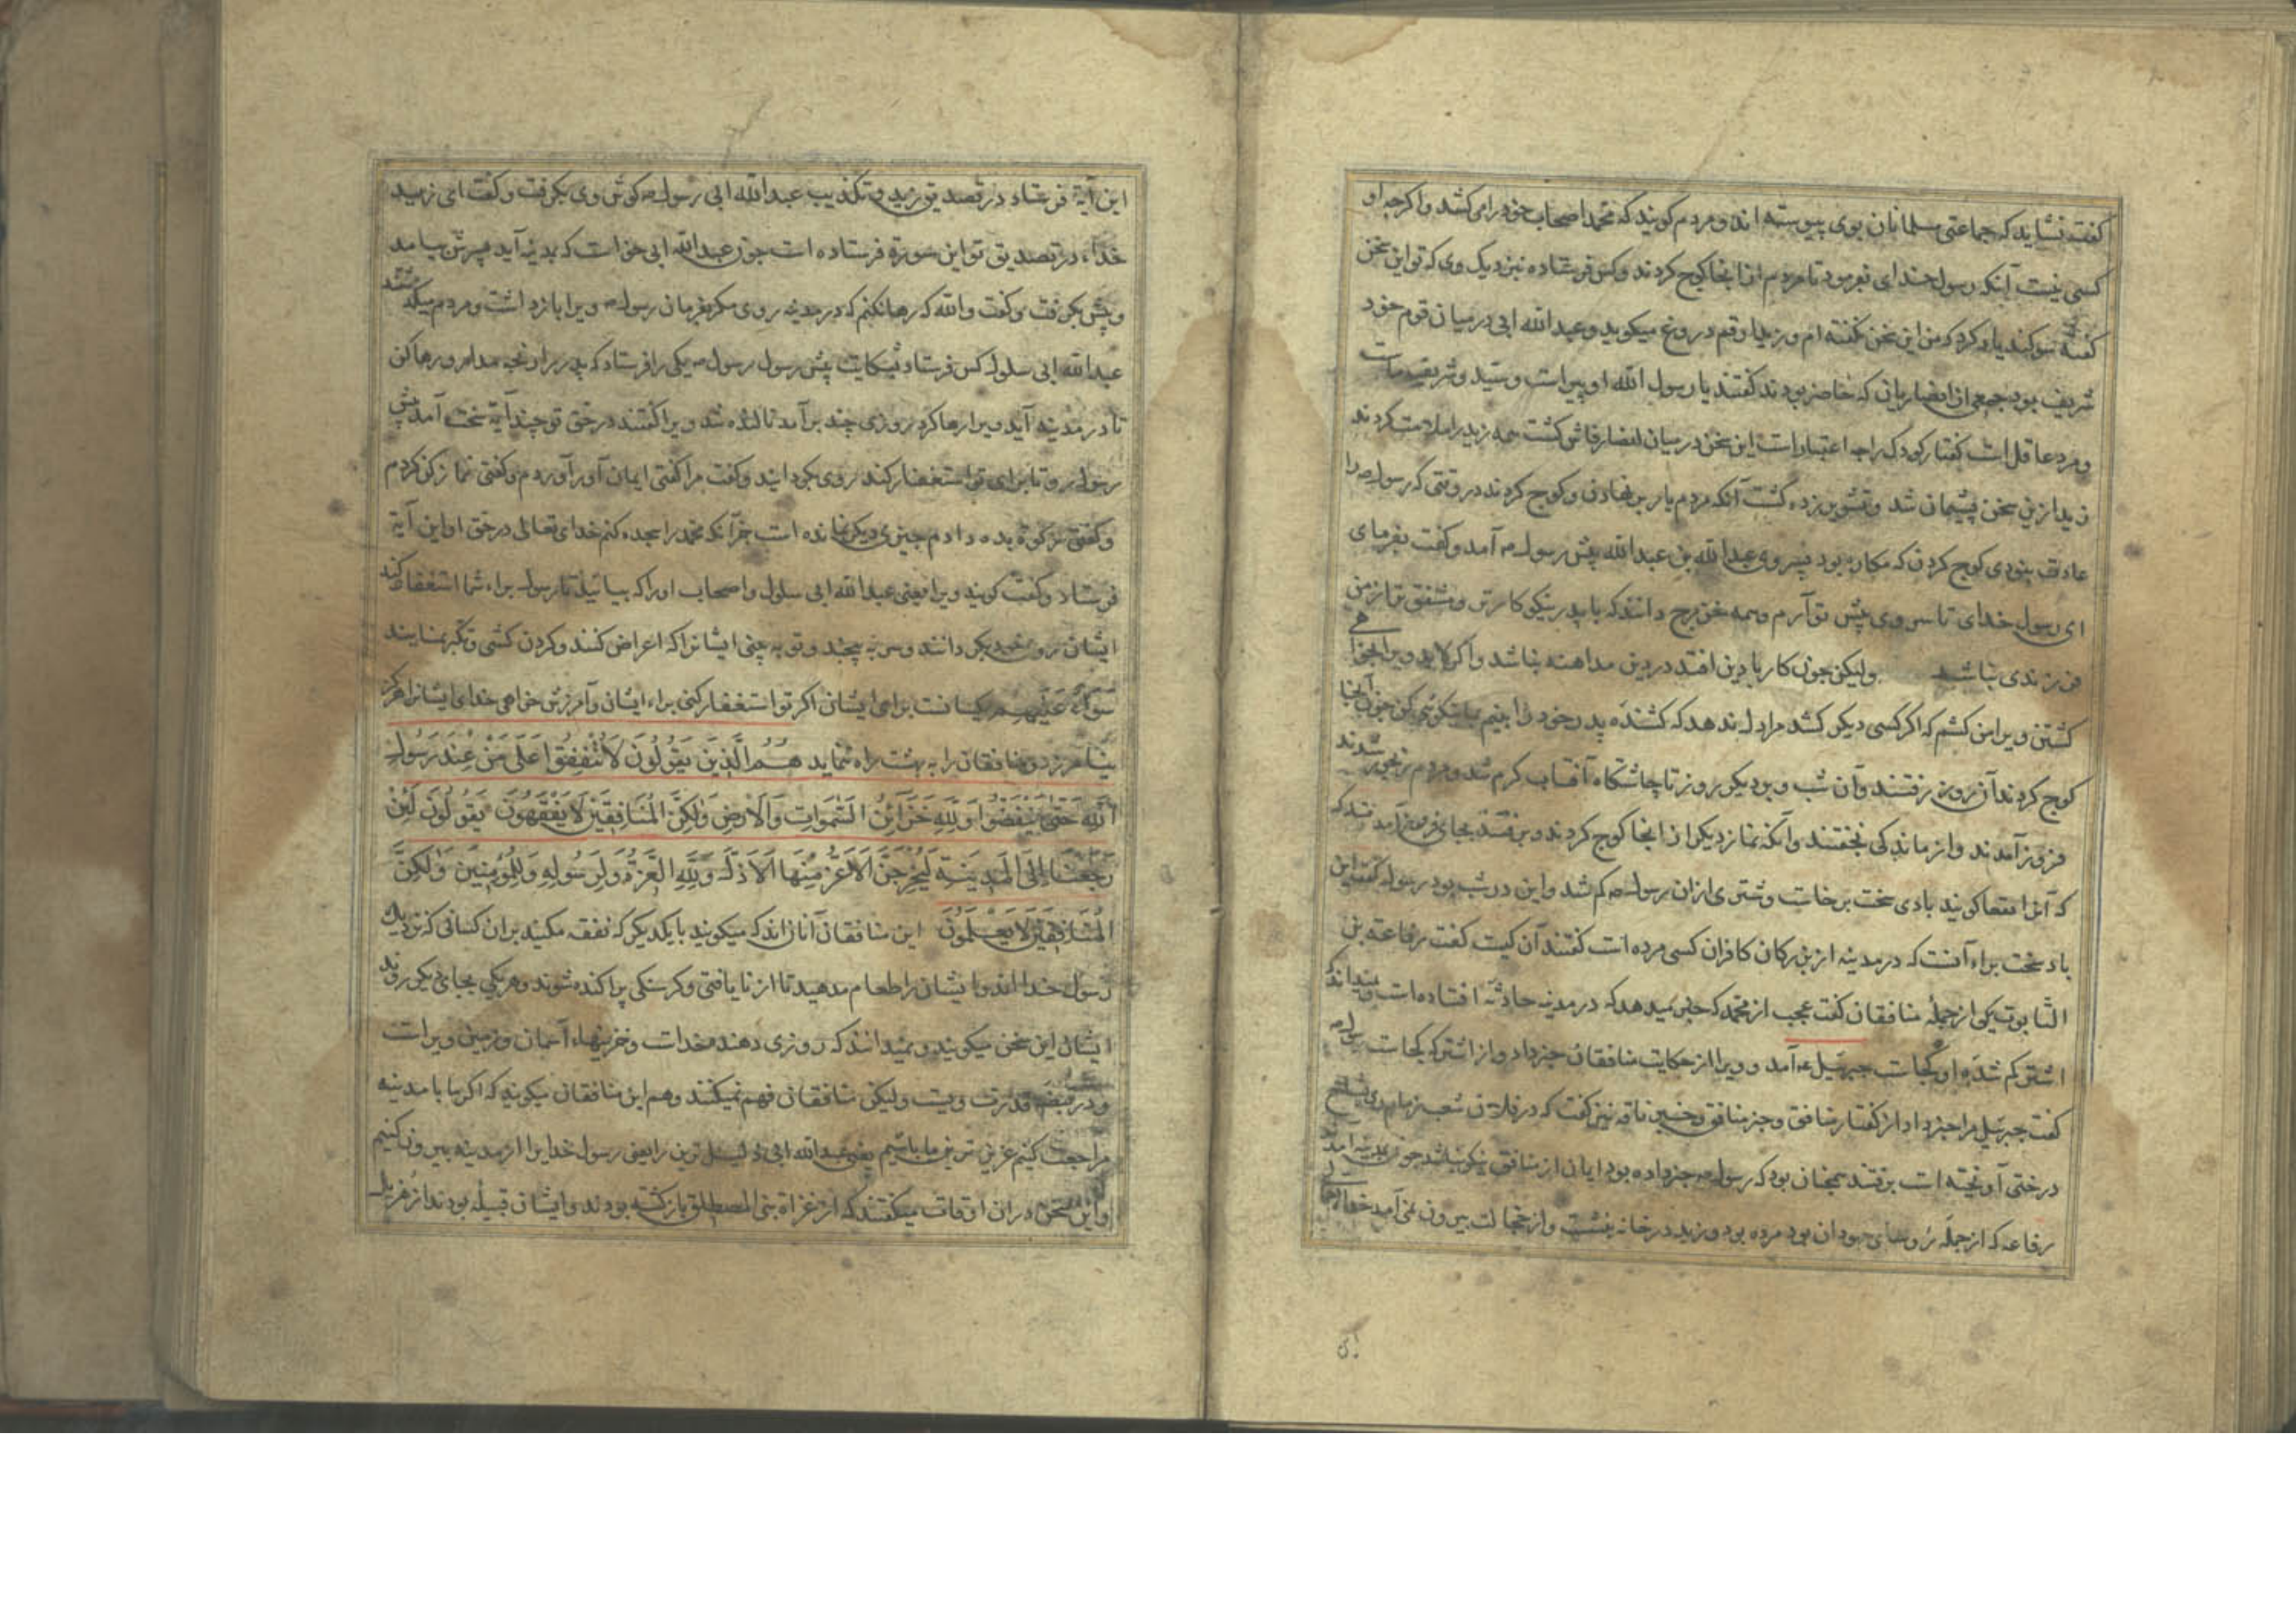 گفت نشاید که جماعتی مسلمانان بوی پیوسته اند و مردم کویند که محمد اصحاب خود را می کشد و اکرجه او
کسی نیست آنکه رسول خدای بفرمود تا مردم از انجا کوج کردند و کس فرستاده نزدیک وی که تو این سخن
کفتهٔ سوکند یاد کرد که من این سخن نکفته ام و زید ارقم دروغ میکوید و عبدالله ابی در میان قوم خود
شریف بود جمعی از انصاریان که حاضر بودند کفتند یا رسول الله او پیر است و سید و شریف ماست
و مرد عاقل است کفتار کودک را جه اعتبار است این سخن در میان انصار فاش کشت همه زید را ملامت کردند
زید ازین سخن پشیمان شد و آنکه مردم بار بر نهادن و کوج کردند در وقتی که رسول را
عادت نبودی کوج کردن که مکاره بود پسر وی عبدالله بن عبدالله پیش رسول آمد و کفت بفرمای
ای رسول خدای تا سر وی پیش تو آرم و همه خزرج دانند که با پدر نیکوکارتر و مشفق تر از من
فرزندی نباشد ولیکن جون کار با دین افتد در دین مداهنه نباشد و اکر لابد ویرا بخواهی
کشتن ویرا من کشم که اکر کسی دیکر کشد مرا دل ندهد که کشندهٔ پدر خود را بینم
کوج کردند آن روز برفتند و آن شب و بر دیکر روز تا جاشتکاه آفتاب کرم شد و مردم رنجور شدند
فروز آمدند و از ماندکی بخفتند و آنکه نماز دیکر از انجا کوج کردند و برفتند بجای فروز آمدند که
که آنرا نقعا کویند بادی سخت برخاست و شتری ازان رسول کم شد و این در شب بود رسول کفت این
باد سخت براء آنست که در مدینه از بزرکان کافران کسی مرده است کفتند آن کیست کفت رفاعة بن
التابوت یکی از جملهٔ منافقان کفت عجب از محمد که خبر میدهد که در مدینه حادثه افتاده است و نمیداند که
اشتر کم شدهٔ او کجاست جبرئیل ع آمد و ویرا از حکایت منافقان خبر داد و از اشتر که کجاست رسول
کفت جبرئیل مرا خبر داد از کفتار منافق و خبر منافق و خبر ناقه نیز کفت که در فلان شعب زمام وی بشاخ
درختی آویخته است برفتند همجنان بود که رسول خبر داده بود ایان از منافق جون بمدینه آمد
رفاعه که از جملهٔ رؤسای جهودان بود مرده بود و زید در خانه بنشست و از خجالت بیرون نمی آمد خدای تعالی
این آیة فرستاد در تصدیق زید و تکذیب عبدالله ابی رسول کوش وی بکرفت و کفت ای زید
خداء در تصدیق تو این سورة فرستاده است جون عبدالله ابی خواست که بدینه آید پسرش بیامد
و پیش بکرفت و کفت والله که رها نکنم که در مدینه روی مکر بفرمان رسول ویرا بازداشت و مردم میکذشتند
عبدالله ابی سلول کس فرستاد بشکایت پیش رسول رسول یکی را فرستاد که پدر را رنجه مدار و رها کن
تا در مدینه آید ویرا رها کرد روزی چند برآمد نالنده شد ویرا کفتند در حق تو چند آیة سخت آمد پیش
رسول رو تا برای تو استغفار کند روی بکردانید و کفت مرا کفتی ایمان آور آوردم و کفتی نماز کن کردم
و کفتی زکوة بده دادم چیزی دیکر نمانده است جز آنکه محمد را سجده کنم خدای تعالی در حق او این آیة
فرستاد و کفت کویند ویرا یعنی عبدالله ابی سلول و اصحاب او را که بیائید تا رسول براء شما استغفار کند
ایشان روی خود بکردانند و سر به پیچند و توبه بینی ایشانرا که اعراض کنند و کردن کشی و تکبر نمایند
سَوَآءٌ عَلَيْهِمْ یکسانست برای ایشان اکر تو استغفار کنی براء ایشان و آمرزش خواهی خدای ایشانرا هرکز
نیامرزد و منافقان را به بهشت راه ننماید هُمُ الَّذِينَ يَقُولُونَ لَا تُنْفِقُوا عَلَى مَنْ عِنْدَ رَسُولِ
اللَّهِ حَتَّى يَنْفَضُّوا وَلِلَّهِ خَزَآئِنُ السَّمَوَاتِ وَالْأَرْضِ وَلَكِنَّ الْمُنَافِقِينَ لَا يَفْقَهُونَ يَقُولُونَ لَئِنْ
رَجَعْنَا إِلَى الْمَدِينَةِ لَيُخْرِجَنَّ الْأَعَزُّ مِنْهَا الْأَذَلَّ وَلِلَّهِ الْعِزَّةُ وَلِرَسُولِهِ وَلِلْمُؤْمِنِينَ وَلَكِنَّ
الْمُنَافِقِينَ لَا يَعْلَمُونَ این منافقان آنانند که میکویند با یکدیکر که نفقه مکنید بران کسانی که نزدیک
رسول خدااند و ایشان را طعام مدهید تا از نایافتی و کرسنکی پراکنده شوند و هر یکی بجای دیکر روند
ایشان این سخن میکویند و نمیدانند که روزی دهنده خداست و خزینهاء آسمان و زمین ویراست
و در قبضه قدرت ویست ولیکن منافقان فهم نمیکنند و هم این منافقان میکویند که اکر ما با مدینه
مراجعت کنیم عزیز ترین ما باشیم یعنی عبدالله ابی ذلیل ترین را یعنی رسول خدایرا از مدینه بیرون کنیم
و این سخن دران اوقات میکفتند که از غزاة بنی المصطلق بازکشته بودند و ایشان قبیلهٔ بودند از هزیل